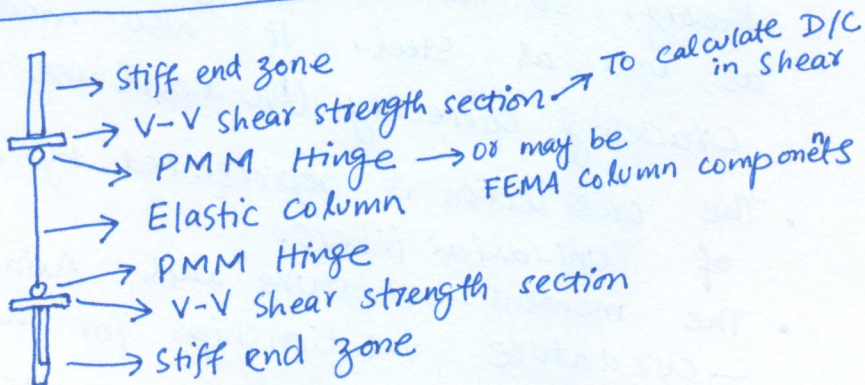 → Stiff end zone
→ V-V shear strength section → To calculate D/C
in shear
→ PMM Hinge → or may be
FEMA column componeńts
→ Elastic column
→ PMM Hinge
→ V-V shear strength section
→ Stiff end zone